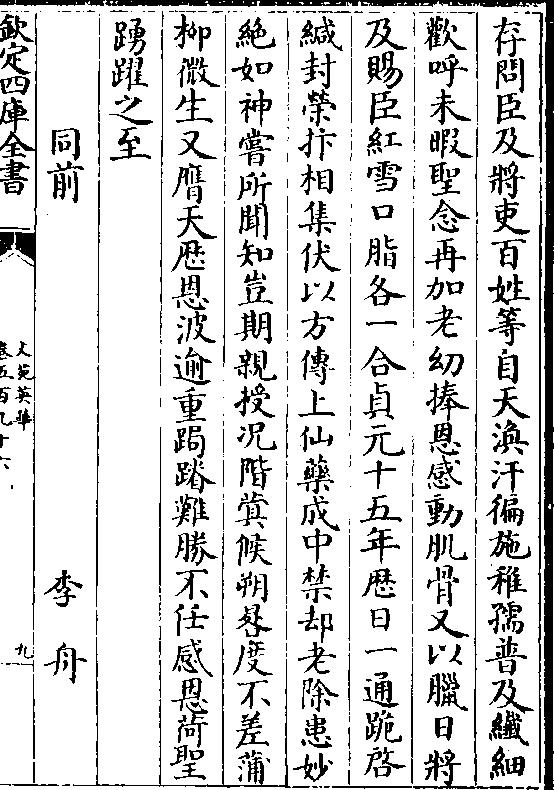 存問臣及將吏百姓等自天渙汗徧施稚孺普及纎細
歡呼未暇聖念再加老幼捧恩感動肌骨又以臘日將
及賜臣紅雪口脂各一合貞元十五年歴日一通跪啓
緘封榮抃相集伏以方傳上仙藥成中禁却老除患妙
絶如神嘗所聞知豈期親授况階蓂候朔晷度不差蒲
柳微生又膺天歴恩波逾重跼蹐難勝不任感恩荷聖
踴躍之至
同前 李舟
欽定四庫全書
文苑英華
卷五百九十六
九